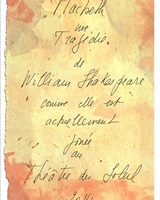 Macbeth
une
Tragédie
de
William Shakespeare
comme elle est
actuellement
jouée
au
Théâtre du Soleil
2014